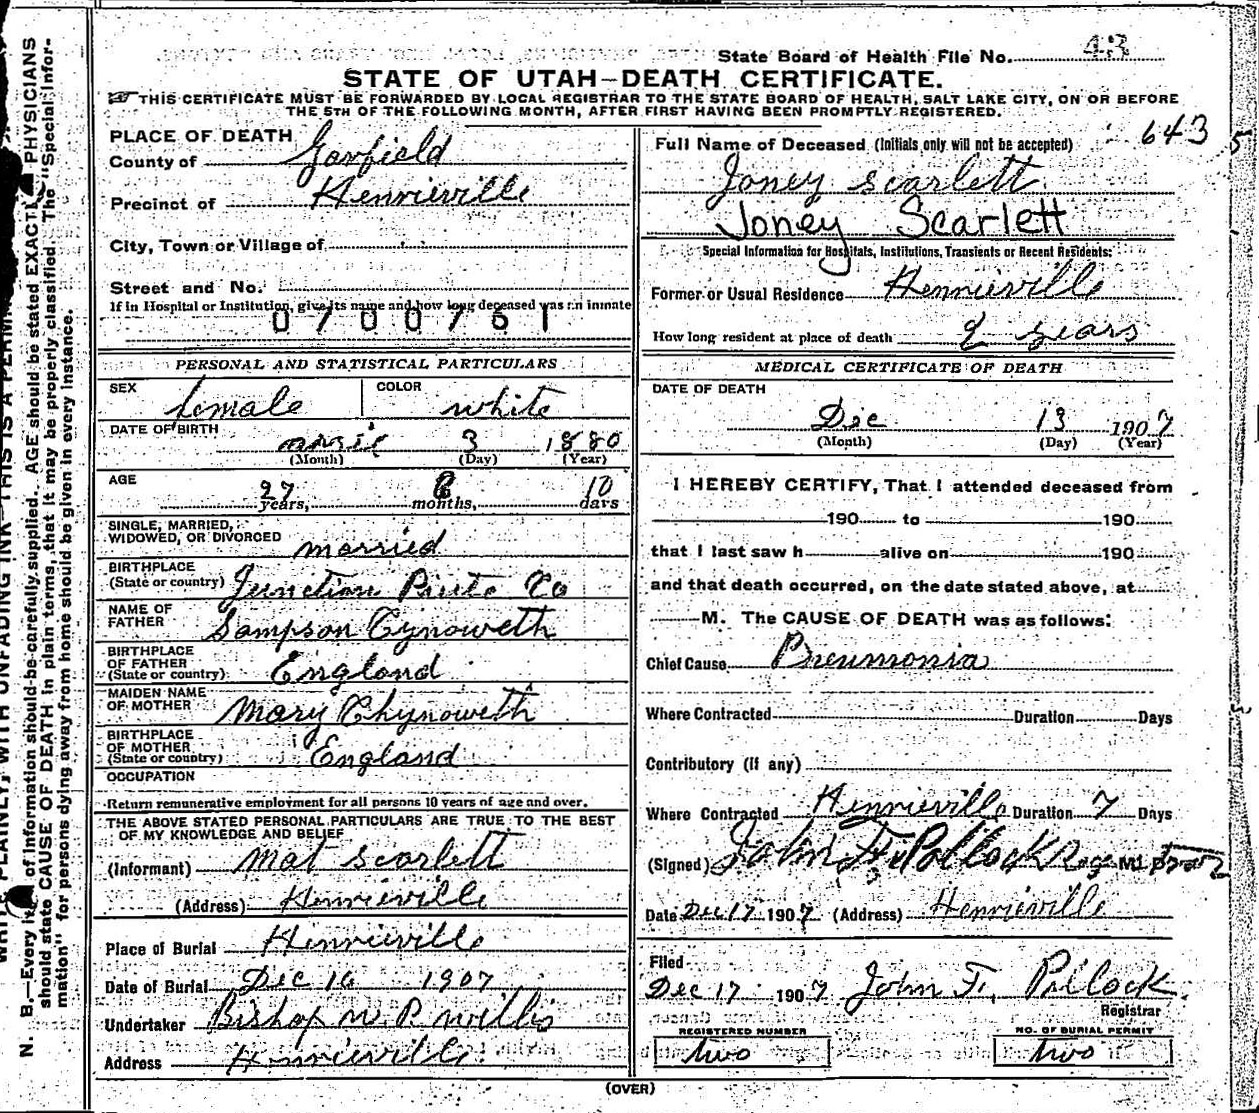 State Board of Health File No. 43
STATE OF UTAH—DEATH CERTIFICATE.
THIS CERTIFICATE MUST BE FORWARDED BY LOCAL REGISTRAR TO THE STATE BOARD OF HEALTH, SALT LAKE CITY, ON OR BEFORE
THE 5TH OF THE FOLLOWING MONTH, AFTER FIRST HAVING BEEN PROMPTLY REGISTERED.
PLACE OF DEATH
County of Garfield
Precinct of Henrieville
City, Town or Village of
Street and No.
If in Hospital or Institution, give its name and how long deceased was an inmate
0700761
PERSONAL AND STATISTICAL PARTICULARS
SEX female COLOR white
DATE OF BIRTH 3 1880
(Month) (Day) (Year)
AGE 27 years, months, 10 days
SINGLE, MARRIED,
WIDOWED, OR DIVORCED married
BIRTHPLACE
(State or country) Junction Piute Co
NAME OF
FATHER Sampson Cynoweth
BIRTHPLACE
OF FATHER
(State or country) England
MAIDEN NAME
OF MOTHER Mary Chynoweth
BIRTHPLACE
OF MOTHER
(State or country) England
OCCUPATION
Return remunerative employment for all persons 10 years of age and over.
THE ABOVE STATED PERSONAL PARTICULARS ARE TRUE TO THE BEST
OF MY KNOWLEDGE AND BELIEF
(Informant) Mat Scarlett
(Address) Henrieville
Place of Burial Henrieville
Date of Burial Dec 16 1907
Undertaker Bishop W. P. Willis
Address Henrieville
643
5
Full Name of Deceased (Initials only will not be accepted)
Joney Scarlett
Joney Scarlett
Special Information for Hospitals, Institutions, Transients or Recent Residents:
Former or Usual Residence Henrieville
How long resident at place of death years
MEDICAL CERTIFICATE OF DEATH
DATE OF DEATH
Dec 13 1907
(Month) (Day) (Year)
I HEREBY CERTIFY, That I attended deceased from
190 to 190
that I last saw h alive on 190
and that death occurred, on the date stated above, at
M. The CAUSE OF DEATH was as follows:
Chief Cause Pneumonia
Where Contracted Duration Days
Contributory (if any)
Where Contracted Henrieville Duration 7 Days
(Signed) John F. Pollock Reg M.
Date Dec 17 1907 (Address) Henrieville
Filed
Dec 17 1907 John F. Pollock.
Registrar
REGISTERED NUMBER
two
NO. OF BURIAL PERMIT
two
(OVER)
N. B.—Every of information should be carefully supplied. AGE should be stated EXACT PHYSICIANS
should state CAUSE OF DEATH in plain terms, that it may be properly classified. The "Special Infor-
mation" for persons dying away from home should be given in every instance.
PLAINLY, WITH UNFADING INK—THIS IS A